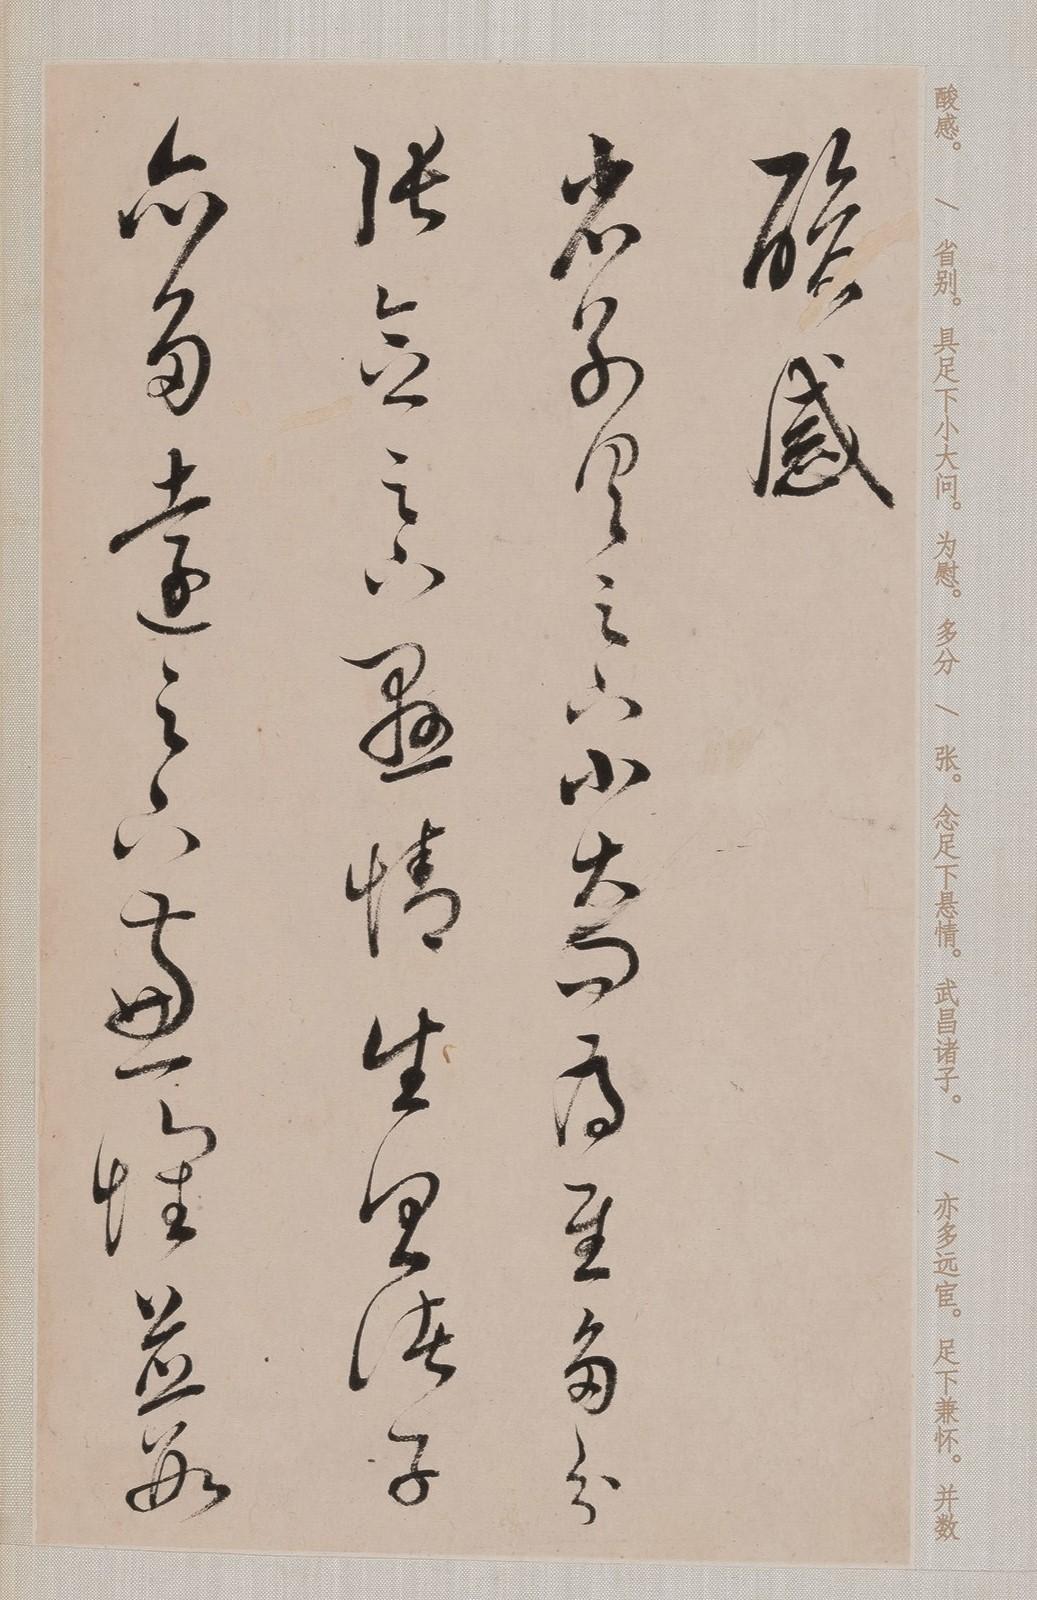 酸感。 \ 省别。具足下小大问。为慰。多分 \ 张。念足下悬情。武昌诸子。 \ 亦多远宦。足下兼怀。并数
酸感
省别具足下小大问为慰多分
张念足下悬情武昌诸子
亦多远宦足下兼怀并数